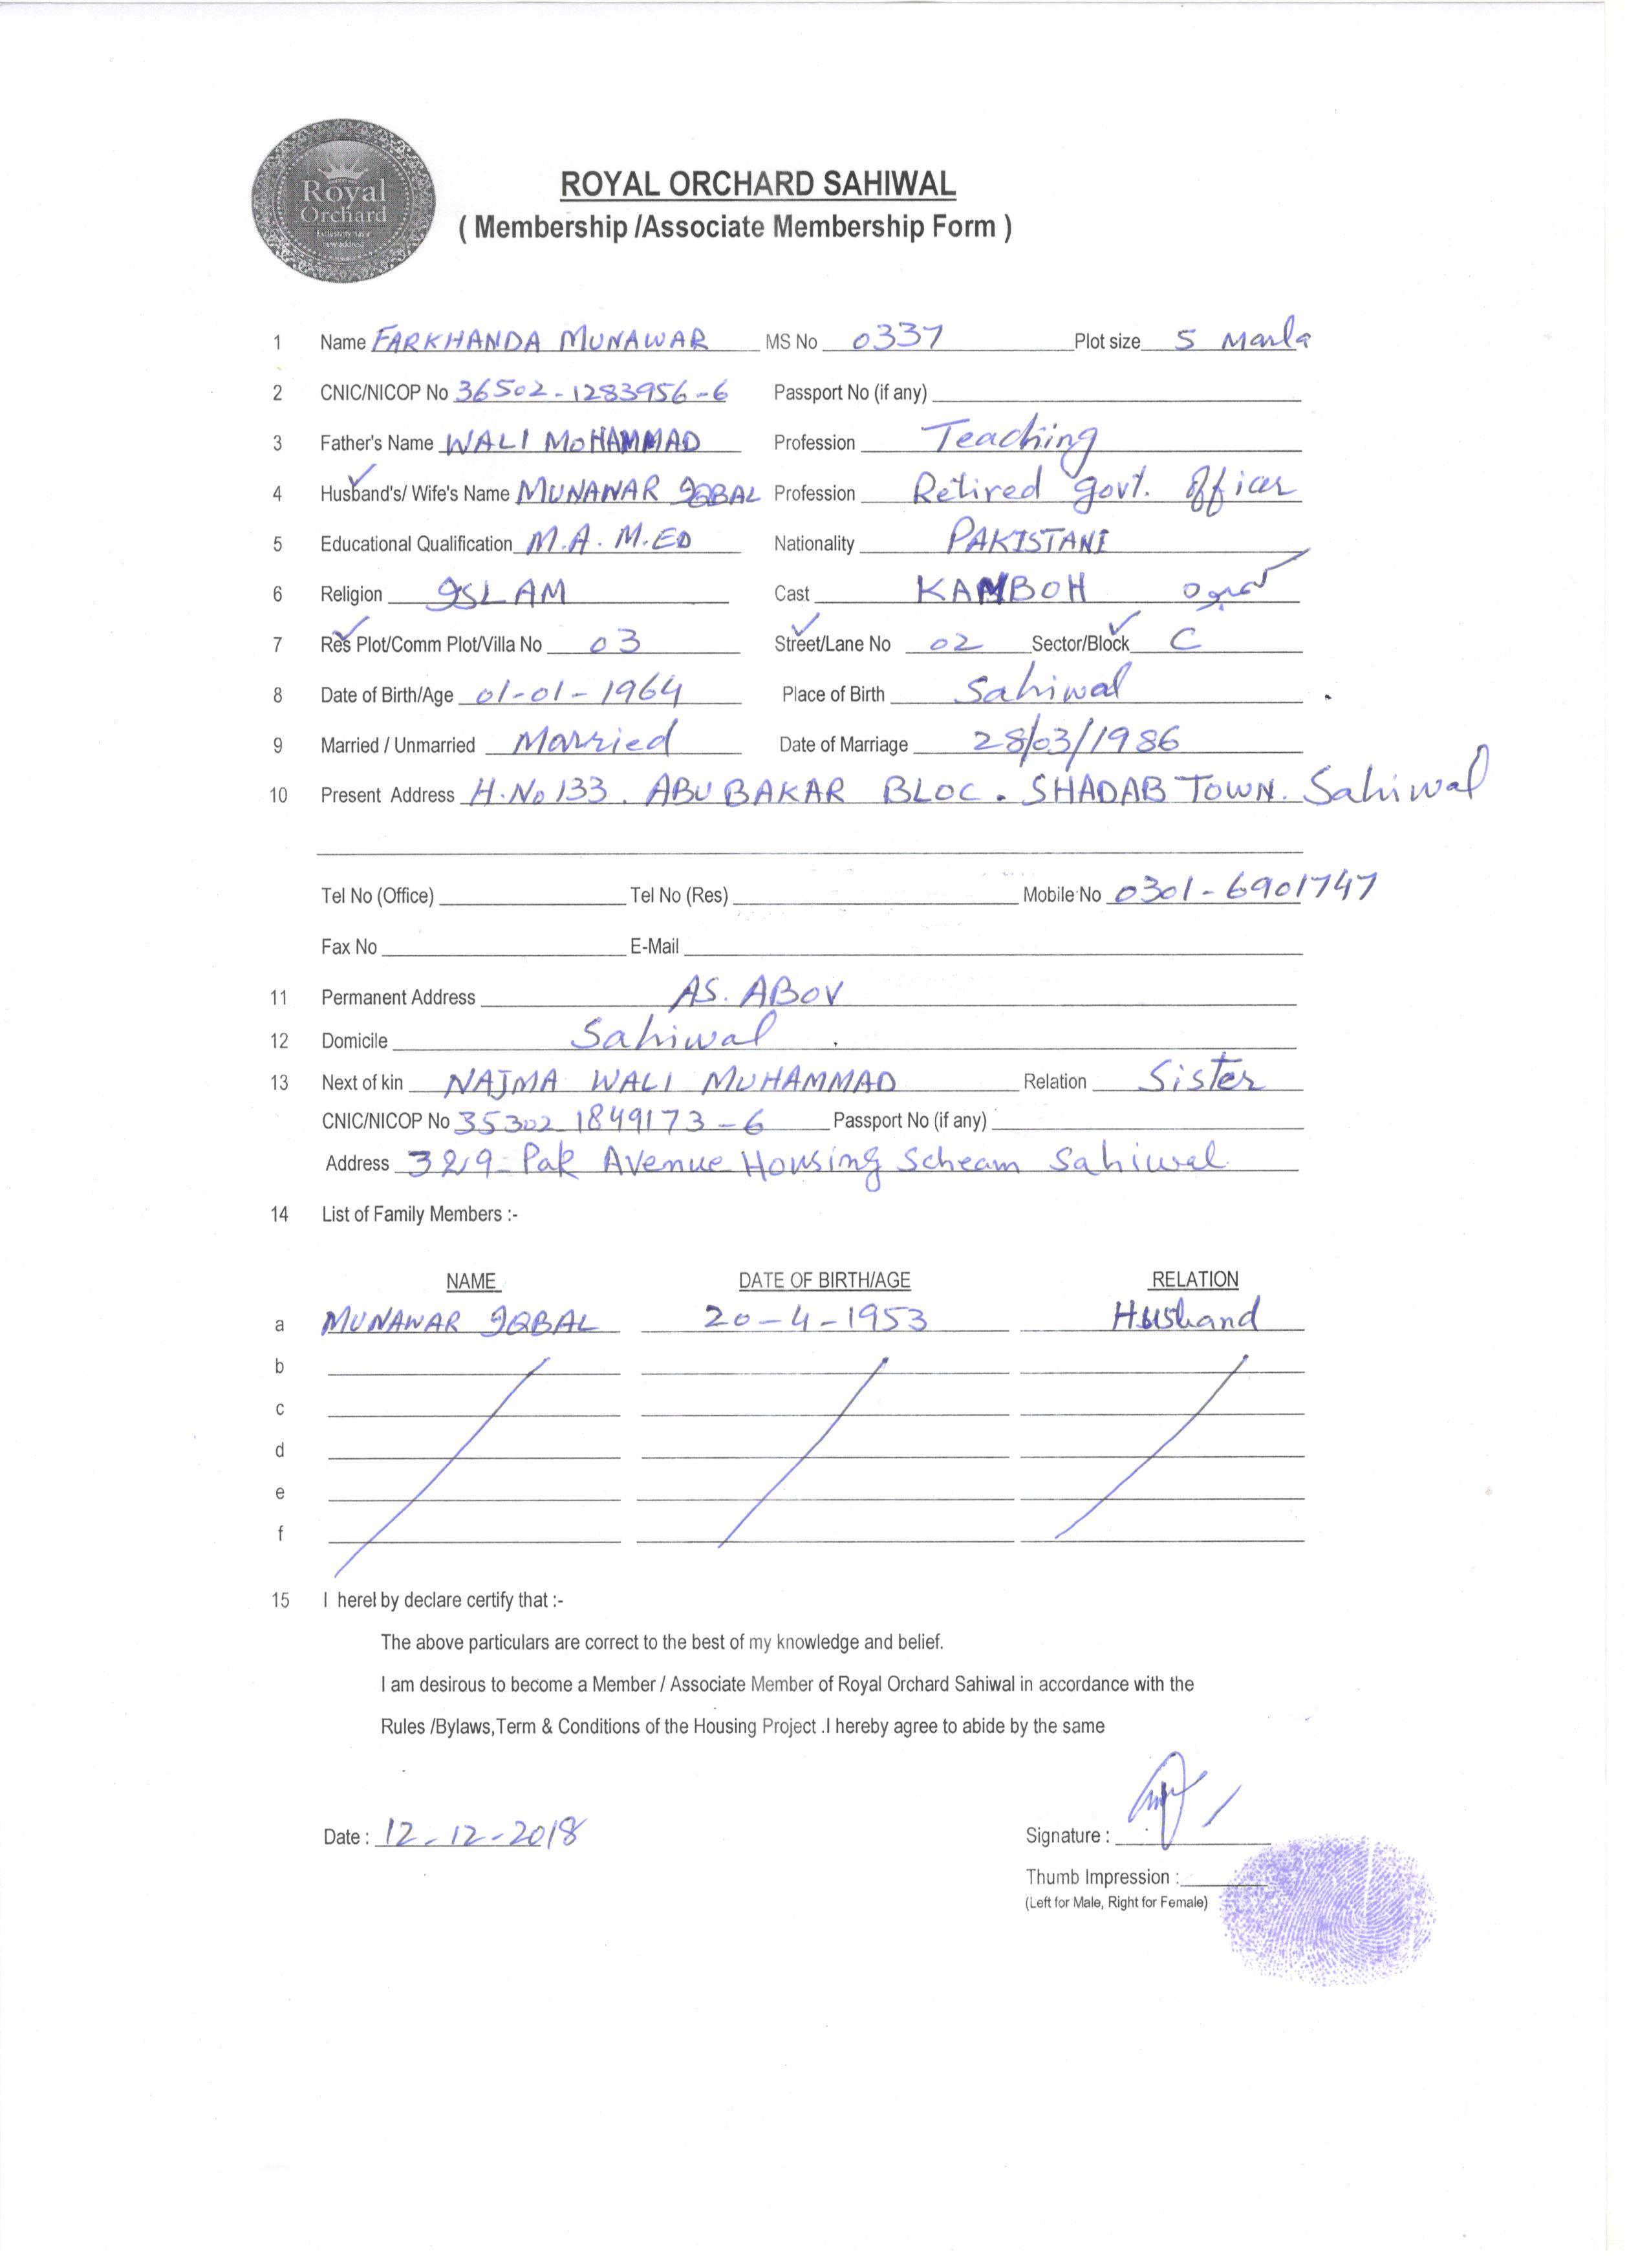 Royal
Orchard
ROYAL ORCHARD SAHIWAL
( Membership /Associate Membership Form )
1 Name FARKHANDA MUNAWAR MS No 0337 Plot size 5 Marla
2 CNIC/NICOP No 36502-1283956-6 Passport No (if any)
3 Father's Name WALI MOHAMMAD Profession Teaching
4 Husband's/ Wife's Name MUNAWAR IQBAL Profession Retired govt. officer
5 Educational Qualification M.A. M.ED Nationality PAKISTANI
6 Religion ISLAM Cast KAMBOH کمبوہ
7 Res Plot/Comm Plot/Villa No 03 Street/Lane No 02 Sector/Block C
8 Date of Birth/Age 01-01-1964 Place of Birth Sahiwal
9 Married / Unmarried Married Date of Marriage 28/03/1986
10 Present Address H.No 133. ABU BAKAR BLOC. SHADAB TOWN. Sahiwal
Tel No (Office) Tel No (Res) Mobile No 0301-6901747
Fax No E-Mail
11 Permanent Address AS. ABOV
12 Domicile Sahiwal
13 Next of kin NAJMA WALI MUHAMMAD Relation Sister
CNIC/NICOP No 35302 1849173-6 Passport No (if any)
Address Pak Avenue Housing Scheam Sahiwal
14 List of Family Members :-
NAME DATE OF BIRTH/AGE RELATION
a MUNAWAR IQBAL 20-4-1953 Husband
b
c
d
e
f
15 I herel by declare certify that :-
The above particulars are correct to the best of my knowledge and belief.
I am desirous to become a Member / Associate Member of Royal Orchard Sahiwal in accordance with the
Rules /Bylaws,Term & Conditions of the Housing Project .I hereby agree to abide by the same
Date : 12-12-2018 Signature :
Thumb Impression :
(Left for Male, Right for Female)